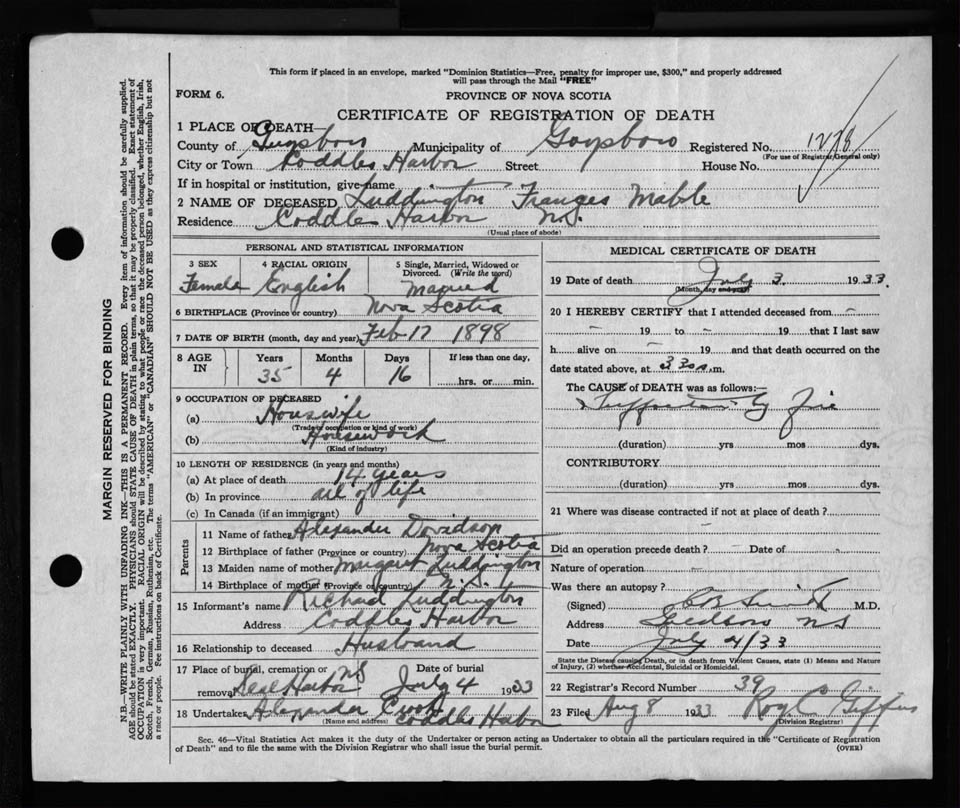 This form if placed in an envelope, marked "Dominion Statistics—Free, penalty for improper use, $300," and properly addressed
will pass through the Mail "FREE"
FORM 6.
PROVINCE OF NOVA SCOTIA
CERTIFICATE OF REGISTRATION OF DEATH
1 PLACE OF DEATH—
County of Guysboro Municipality of Goysboro Registered No. 1278
(For use of Registrar General only)
City or Town Coddles Harbor Street House No.
If in hospital or institution, give name
2 NAME OF DECEASED Luddington Franges Mable
Residence Coddles Harbor N.S.
(Usual place of abode)
PERSONAL AND STATISTICAL INFORMATION
3 SEX 4 RACIAL ORIGIN 5 Single, Married, Widowed or Divorced. (Write the word)
Female English Married
6 BIRTHPLACE (Province or country) Nova Scotia
7 DATE OF BIRTH (month, day and year) Feb 17 1898
8 AGE IN Years Months Days If less than one day,
35 4 16 hrs. or min.
9 OCCUPATION OF DECEASED
(a) Housewife
(Trade, occupation or kind of work)
(b) Housework
(Kind of industry)
10 LENGTH OF RESIDENCE (in years and months)
(a) At place of death 14 years
(b) In province all of life
(c) In Canada (if an immigrant)
Parents
11 Name of father Alexander Davidson
12 Birthplace of father (Province or country) Nova Scotia
13 Maiden name of mother Margaret Luddington
14 Birthplace of mother (Province or country) N.S.
15 Informant's name Richard Luddington
Address Coddles Harbor
16 Relationship to deceased Husband
17 Place of burial, cremation or removal Seal Harbor NS Date of burial July 4 1933
18 Undertaker Alexander Crook Coddles Harbor
(Name and address)
MEDICAL CERTIFICATE OF DEATH
19 Date of death July 3 1933.
(Month, day and year)
20 I HEREBY CERTIFY that I attended deceased from –
– 19 to – 19 that I last saw
h alive on – 19 and that death occurred on the
date stated above, at 3 30 a.m.
The CAUSE of DEATH was as follows:—
(duration) yrs mos dys.
CONTRIBUTORY
(duration) yrs mos dys.
21 Where was disease contracted if not at place of death?
Did an operation precede death? – Date of –
Nature of operation
Was there an autopsy?
(Signed) M.D.
Address NS
Date July 4/33
State the Disease causing Death, or in death from Violent Causes, state (1) Means and Nature
of Injury, (2) whether Accidental, Suicidal or Homicidal.
22 Registrar's Record Number 39
23 Filed Aug 8 1933 Roy C Giffin
(Division Registrar)
Sec. 46—Vital Statistics Act makes it the duty of the Undertaker or person acting as Undertaker to obtain all the particulars required in the "Certificate of Registration
of Death" and to file the same with the Division Registrar who shall issue the burial permit.
(OVER)
MARGIN RESERVED FOR BINDING
N.B.—WRITE PLAINLY WITH UNFADING INK—THIS IS A PERMANENT RECORD. Every item of information should be carefully supplied.
AGE should be stated EXACTLY. PHYSICIANS should STATE CAUSE OF DEATH in plain terms, so that it may be properly classified. Exact statement of
OCCUPATION is very important. RACIAL ORIGIN will be described by stating to what people or race the deceased person belonged, whether English, Irish,
Scotch, French, German, Russian, Ruthenian, etc. The terms "AMERICAN" or "CANADIAN" SHOULD NOT BE USED as they express citizenship but not
a race or people. Fee instructions on back of Certificate.